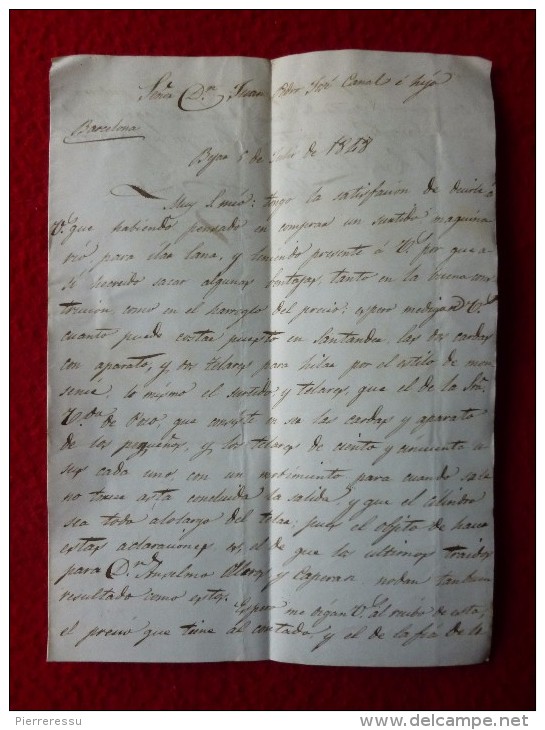 Señor Dn. Juan Canal é hijo
Barcelona
Bejar 5 de Julio de 1848
Muy S. mio: tengo la satisfacion de decirle á
V. que habiendo pensado en comprar un surtido maquina
rio para ilar lana, y teniendo presente á V. por que a
sé heredo sacar algunas bentajas, tanto en la buena cons
trucion, como en el parreglo del precio: espero medigan V.
cuanto puede costar puesto en Santander las dos cardas
con aparato, y dos telares para hilar por el estilo de mon
lo mismo el surtido y telares, que el de la Sra.
Vda. de que consiste en las cardas y aparato
de los pequeños, y los telares de ciento y cincuenta u
sus cada uno con un mobimiento para cuando sale
no tuerce asta concluida la salida y que el cilindro
sea todo álolargo del telar: pues el objeto de hacer
estas aclaraciones es el de que los ultimos traidos
para Dn. Anselmo Olleros y nodan tambien
resultado como estos.
Espero me digan V. al recibo de esta,
el precio que tiene al contado, y el de la
Pierreressu
www.delcampe.net